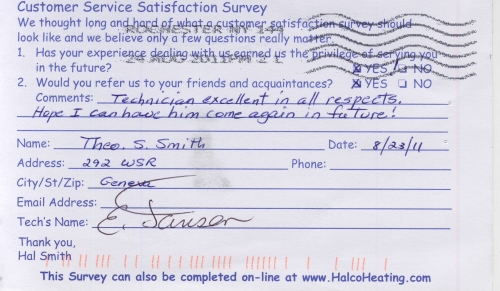 Customer Service Satisfaction Survey
We thought long and hard of what a customer satisfaction survey should
look like and we believe only a few questions really matter.
ROCHESTER NY 144
1. Has your experience dealing with us earned us the privilege of serving you
in the future? ☒ YES ☐ NO
24 AUG 2011 PM 2 L
2. Would you refer us to your friends and acquaintances? ☒ YES ☐ NO
Comments: Technician excellent in all respects.
Hope I can have him come again in future!
Name: Theo. S. Smith Date: 8/23/11
Address: 292 WSR Phone:
City/St/Zip: Geneva
Email Address:
Tech's Name: E. Janson
Thank you,
Hal Smith
This Survey can also be completed on-line at www.HalcoHeating.com